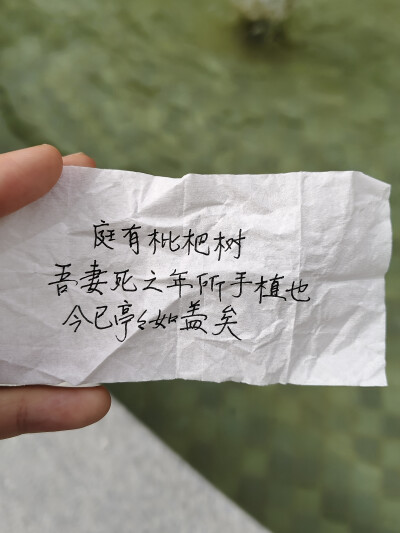 庭有枇杷树
吾妻死之年所手植也
今已亭々如盖矣